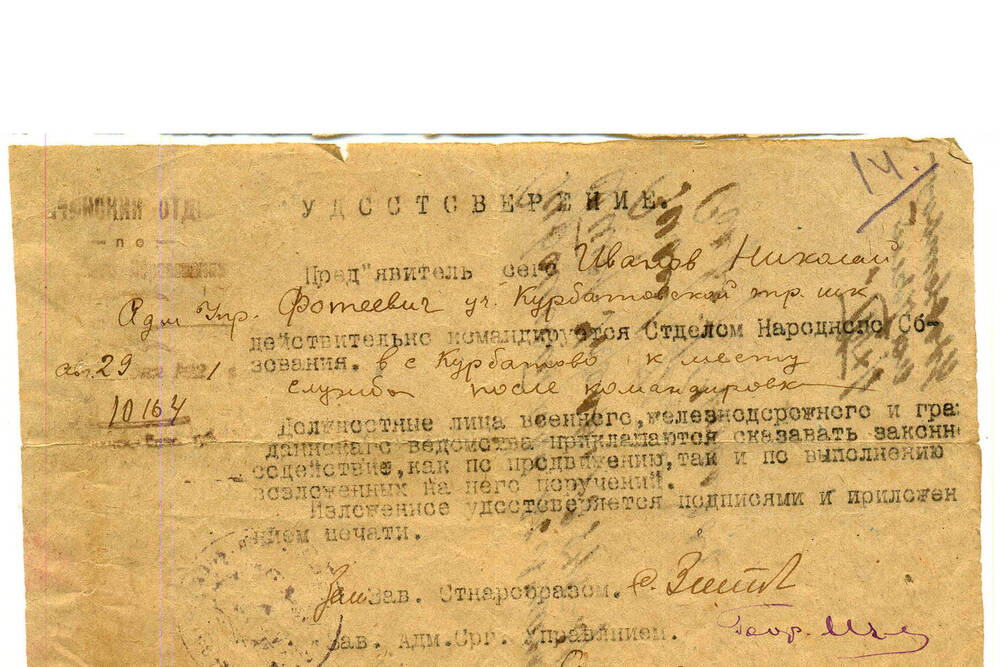 14.
УДОСТОВЕРЕНИЕ.
— по —
Пред"явитель сего Иванов Николай
Адм Упр. Фотеевич уч. Курбатовской тр. шк
действительно командируется Отделом Народного Об-
авг. 29 1921 зования. в с Курбатово к месту
службы после командировки
10164
Должностные лица военного, железнодорожного и граж
даннскаго ведомства приглашаются оказавать законн
содействие, как по продвижению, так и по выполнению
возложенных на него поручений.
Изложенное удостоверяется подписями и приложен
нием печати.
Зам Зав. Отнаробразом.
Зав. Адм.Орг. Управлнием. Геор.